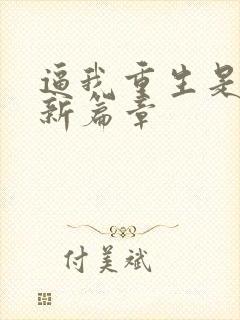 逼我重生是
新篇章
付美斌